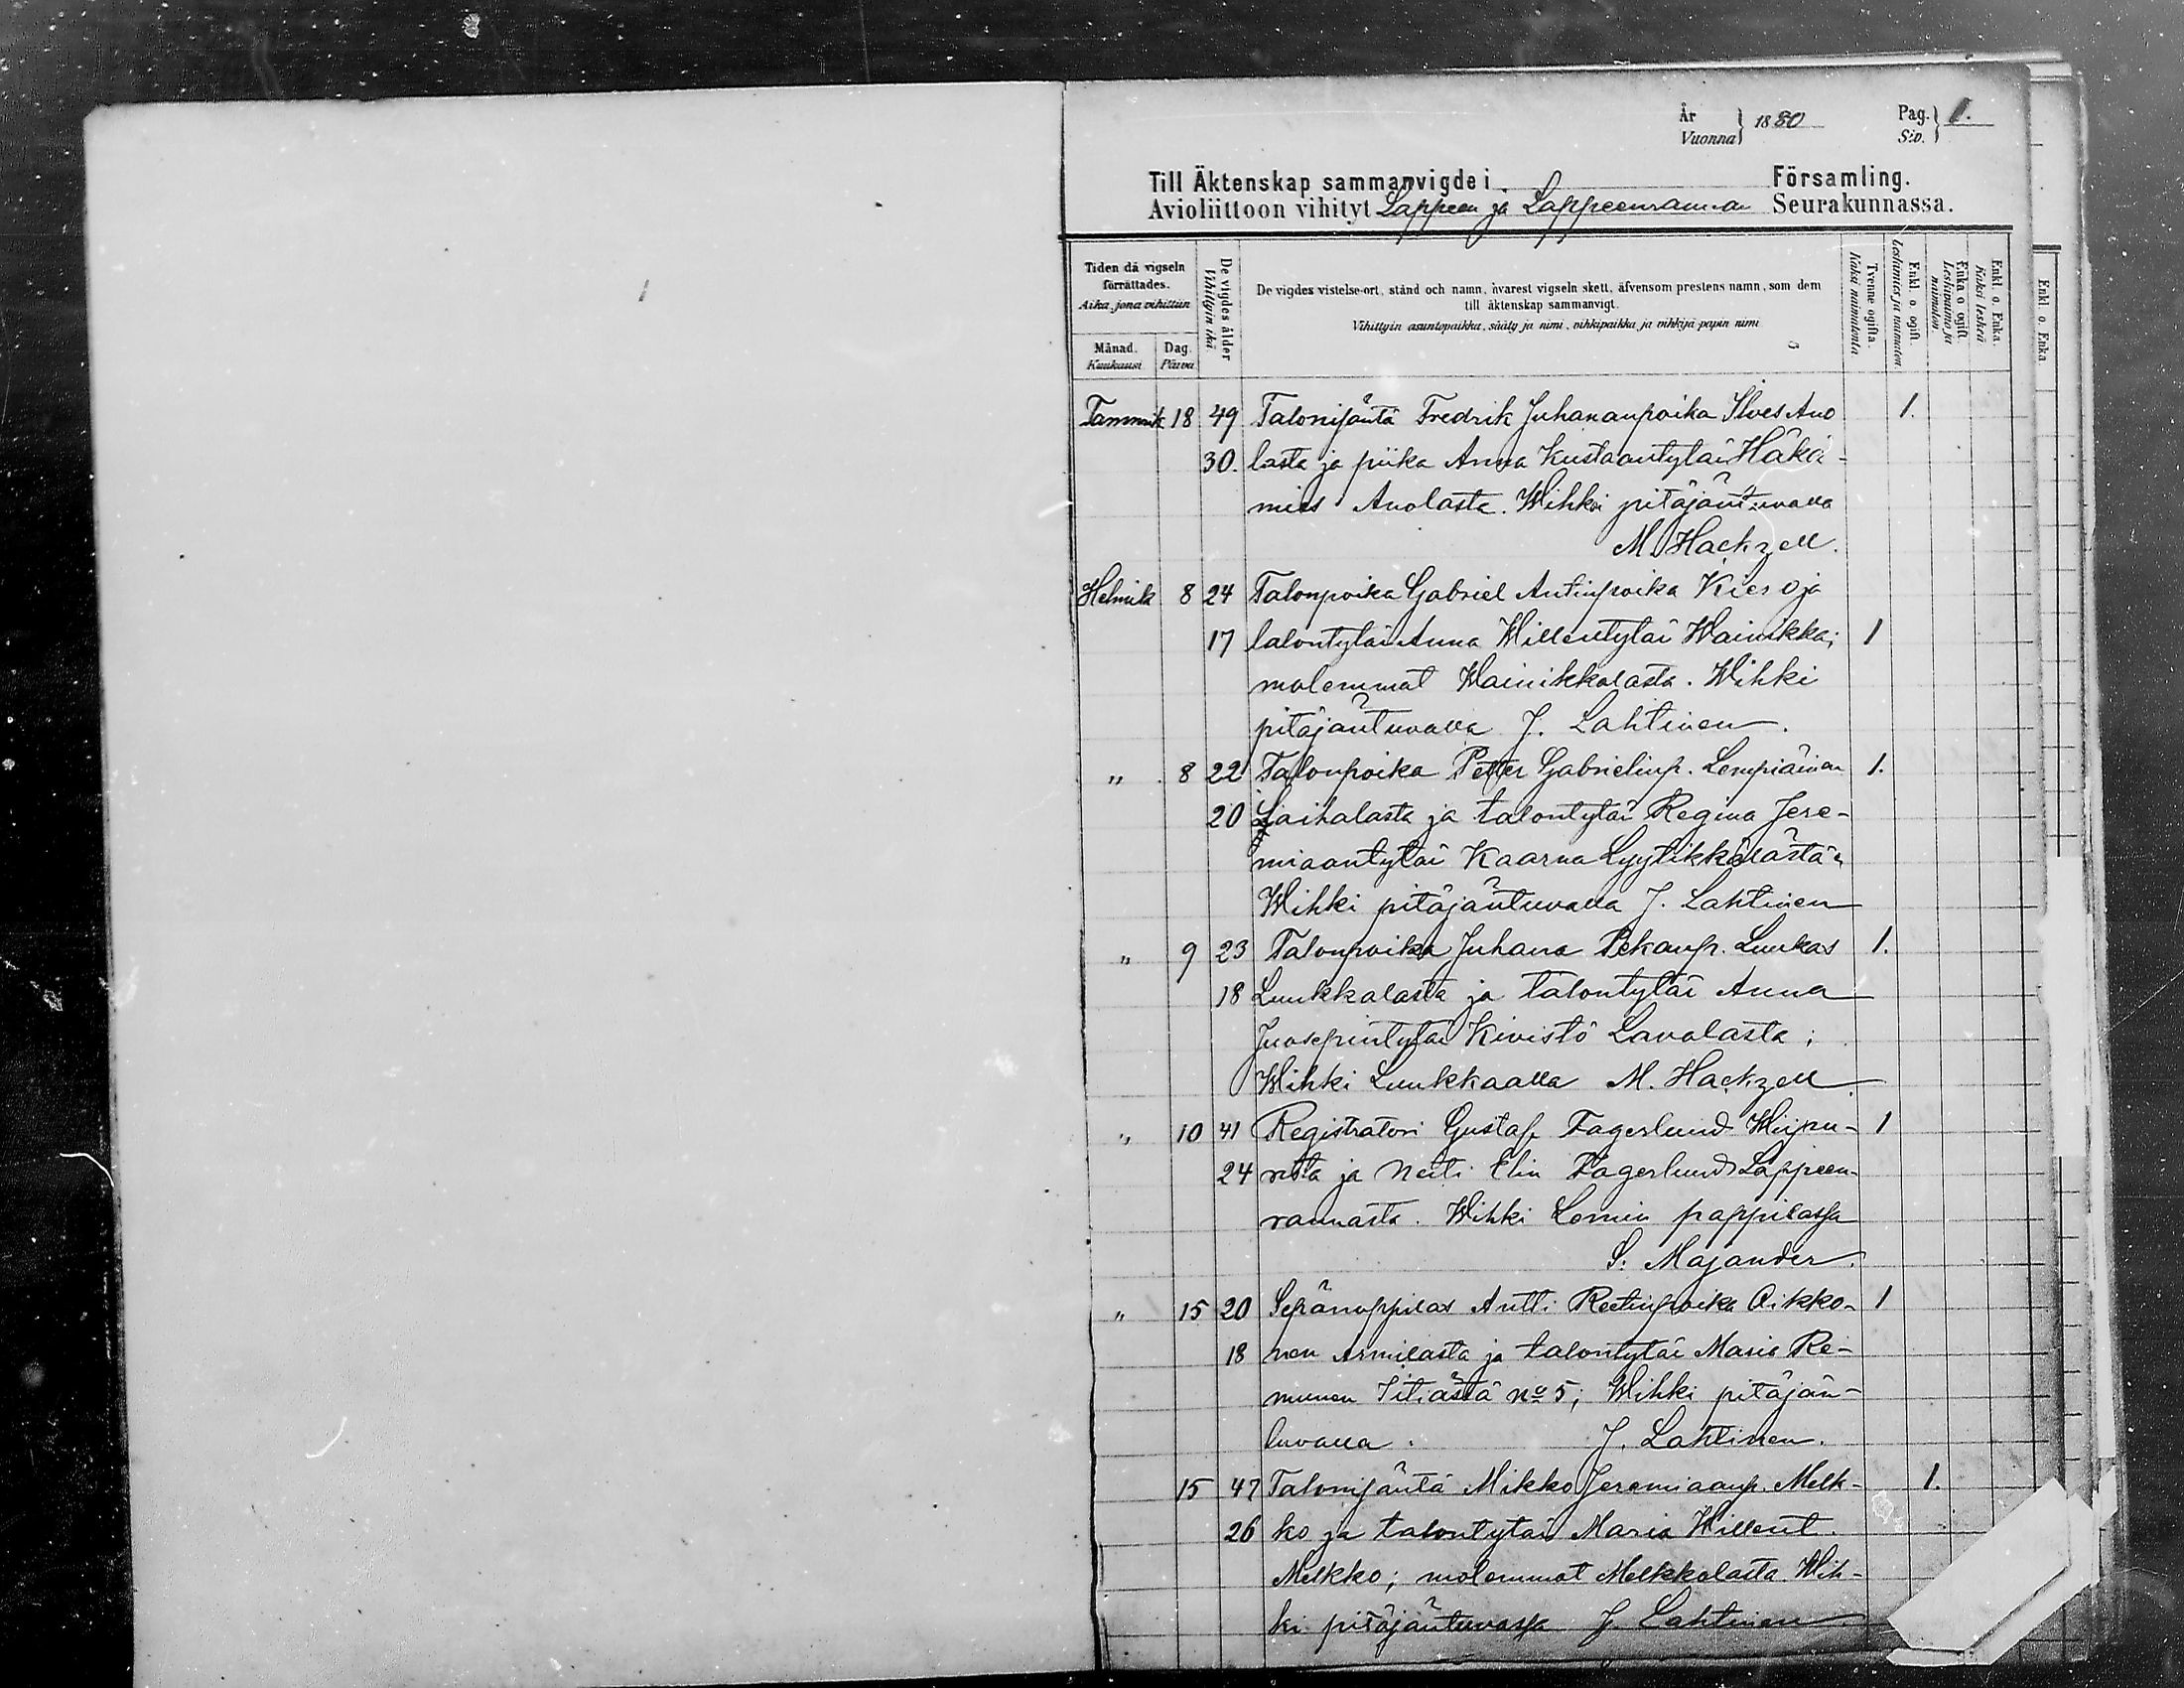 År Vuonna } 1880 Pag. Siv. } 1.
Till Äktenskap sammanvigde i Församling.
Avioliittoon vihityt Lappeen ja Lappeenrannan Seurakunnassa.
Tiden då vigseln förrättades.
Aika, jona vihittiin
Månad. Kuukausi
Dag. Päivä
De vigdes ålder
Vihittyjn ikä.
De vigdes vistelse-ort, stånd och namn, hvarest vigseln skett, äfvensom prestens namn, som dem
till äktenskap sammanvigt.
Vihittyin asuntopaikka, sääty ja nimi, vihkipaikka ja vihkijä-papin nimi
Tvenne ogifta. Kaksi naimatonta
Enkl. o. ogift. Leskimies ja naimaton
Enka o ogift. Leskivaimo ja naimaton.
Enkl. o. Enka. Kaksi leskeä
Enkl. o. Enka.
Tammik 18 49 Talonisäntä Fredrik Juhananpoika Ilves Ano 1.
30. lasta ja piika Anna Kustaantytär Häkä-
mies Anolasta. Wihki pitäjäntuvalla
M. Hackzell.
Helmik 8 24 Talonpoika Gabriel Antinpoika Kies oja
17 talontytär Anna Willentytär Wainikka; 1
molemmat Wainikkalasta. Wihki
pitäjäntuvalla J. Lahtinen.
" 8 22 Talonpoika Petter Gabrielinp. Lempiäinen 1.
20 Laihalasta ja talontytär Regina Jere-
miaantytär Kaarna Lyytikkälästä.
Wihki pitäjäntuvalla J. Lahtinen
" 9 23 Talonpoika Juhana Pekanp. Luukas 1.
18 Luukkalasta ja talontytär Anna
Juosepintytär Kivistö Lavolasta;
Wihki Luukkaalla M. Hackzell.
" 10 41 Registratori Gustaf Fagerlund Wiipu- 1
24 rista ja Neiti Elin Fagerlund Lappeen-
rannasta. Wihki Lemin pappilassa
S. Majander.
" 15 20 Sepänoppilas Antti Reetinpoika Oikko- 1
18 nen Armilasta ja talontytär Maria Re-
munen Itiästä No 5; Wihki pitäjän-
tuvalla. J. Lahtinen.
15 47 Talonisäntä Mikko Jeremiaanp. Melk- 1.
26 ko ja talontytär Maria Willent.
Melkko; molemmat Melkkolasta. Wih-
ki pitäjäntuvassa J. Lahtinen